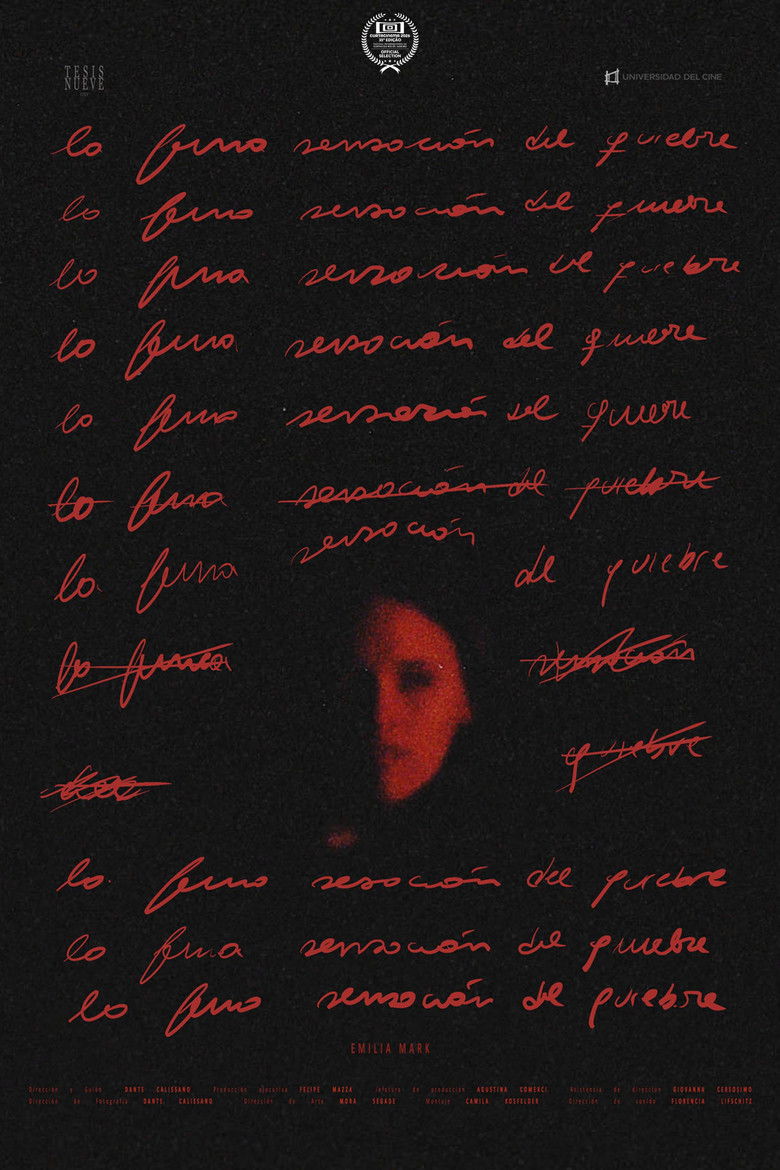 CURTACINEMA 2025
EDIÇÃO
OFFICIAL
SELECTION
TESIS
NUEVE
UNIVERSIDAD DEL CINE
la fina sensación del quiebre
la fina sensación del quiebre
la fina sensación del quiebre
la fina sensación del quiebre
la fina sensación del quiebre
la fina sensación del quiebre
sensación
la fina del quiebre
la fina sensación
quiebre
la fina sensación del quiebre
la fina sensación del quiebre
la fina sensación del quiebre
EMILIA MARK
Dirección y Guión DANTE CALISSANO Producción ejecutiva FELIPE MAZZA Jefatura de producción AGUSTINA COMERCI Asistencia de dirección GIOVANNA CERSOSIMO
Dirección de Fotografía DANTE CALISSANO Dirección de Arte MORA SEBADE Montaje CAMILA KOSFELDER Dirección de sonido FLORENCIA LIFSCHITZ